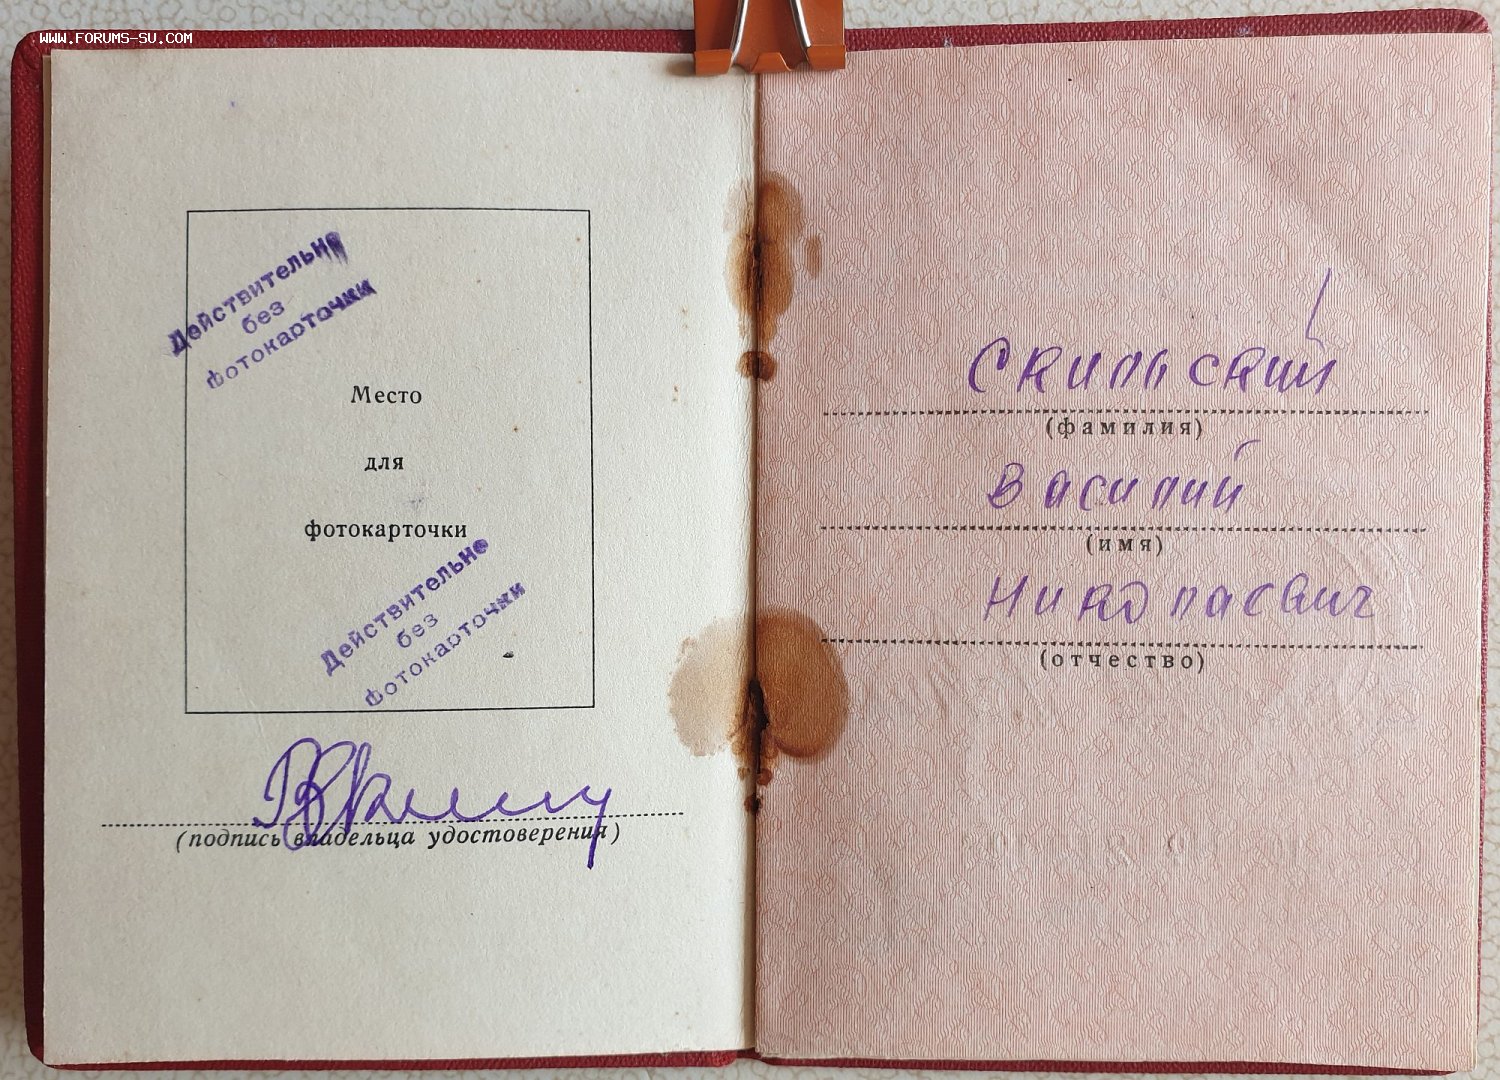 WWW.FORUMS-SU.COM
Действительно
без
фотокарточки
Место
для
фотокарточки
Действительно
без
фотокарточки
(подпись владельца удостоверения)
Скильский
(фамилия)
Василий
(имя)
Николаевич
(отчество)